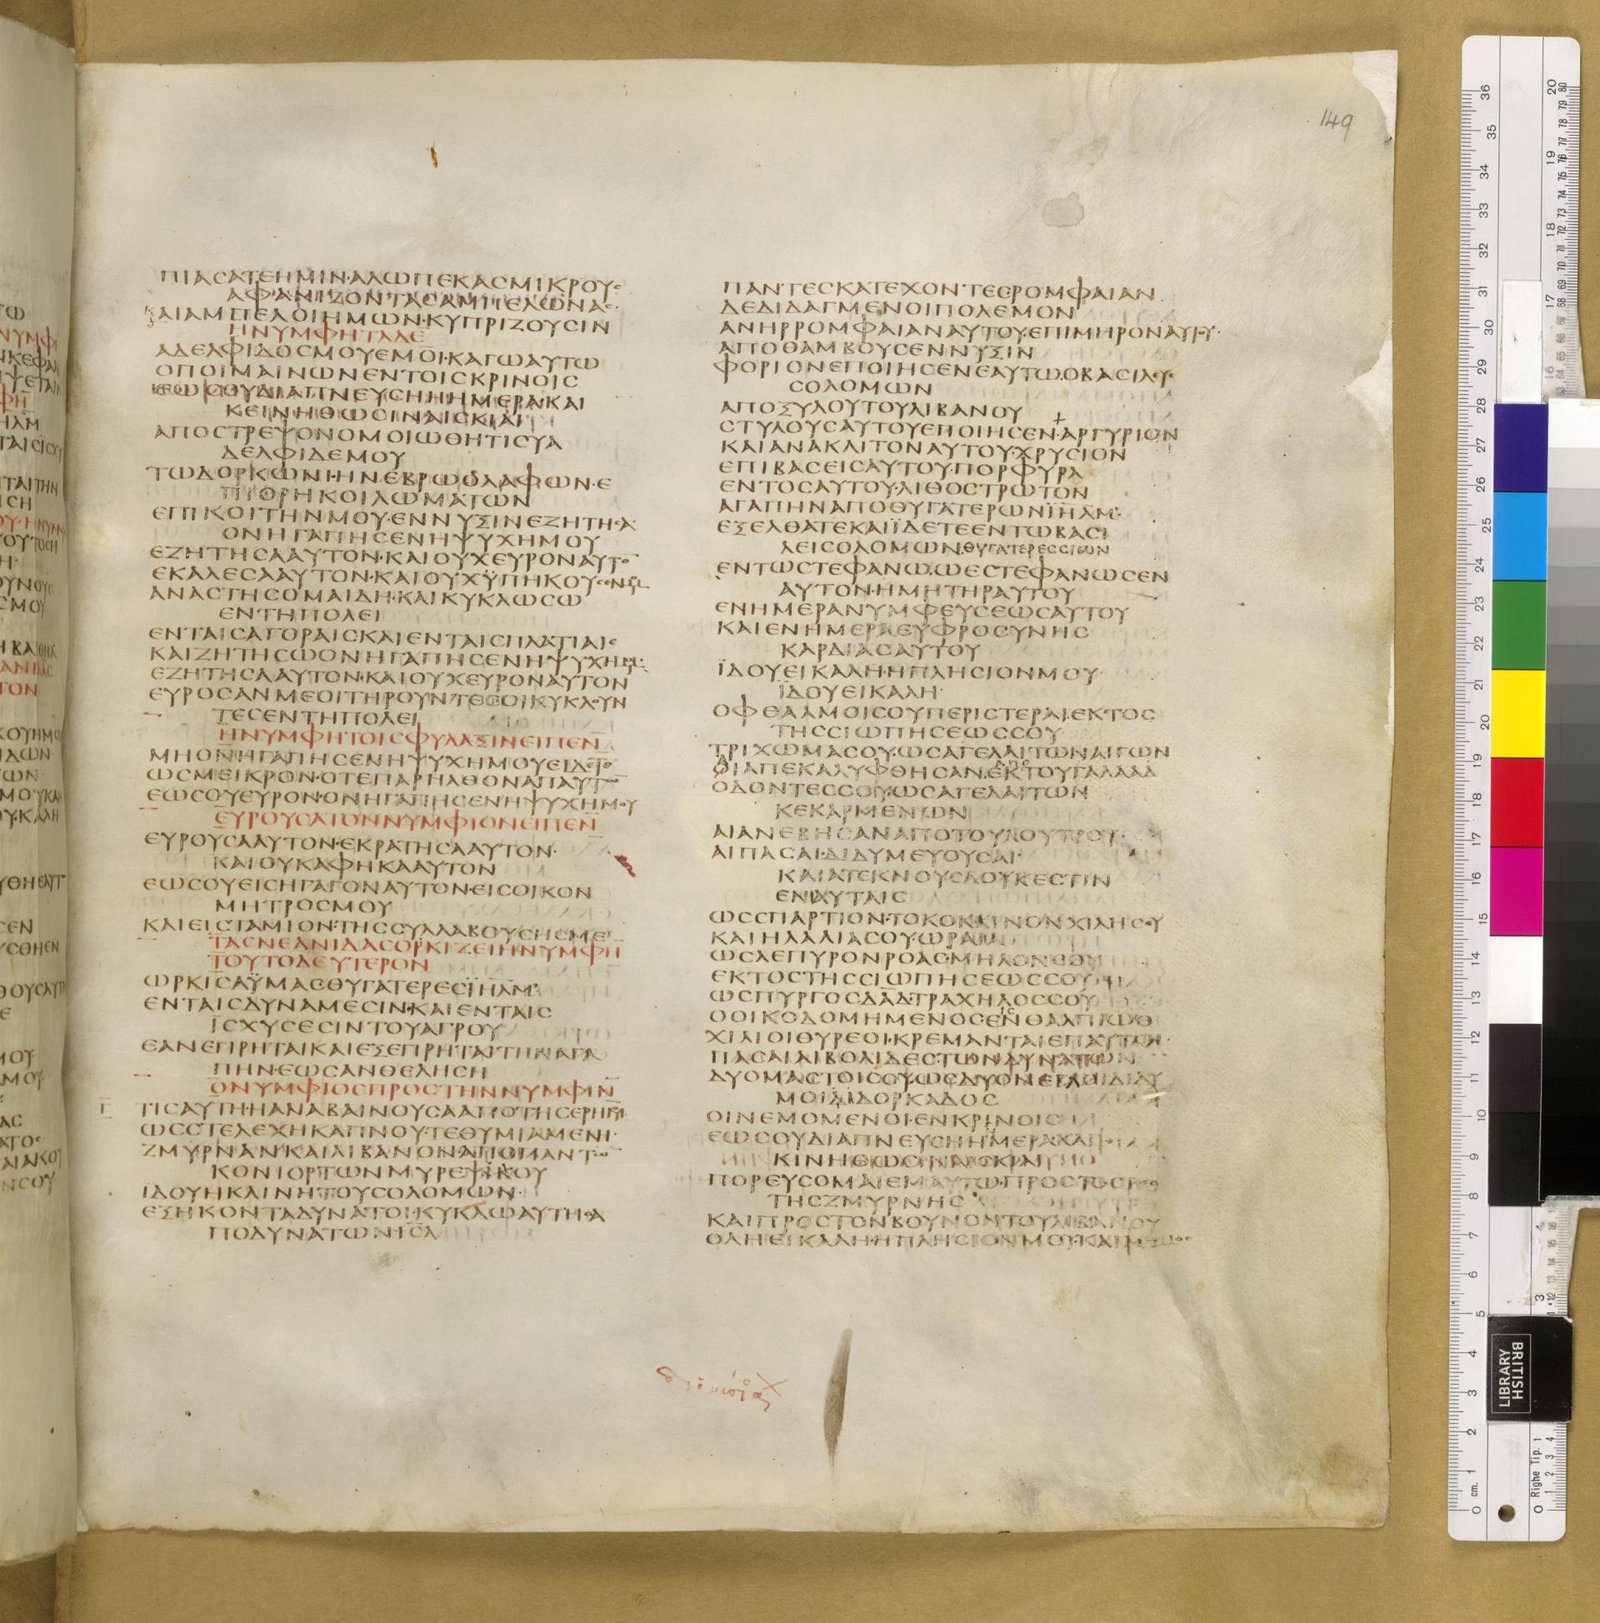 149
ΠΙΑСΑΤΕΗΜΙΝ·ΑΛΩΠΕΚΑСΜΙΚΡΟΥС
ΑΦΑΝΙΖΟΝΤΑСΑΜΠΕΛΩΝΑС
ΑΙΑΜΠΕΛΟΙΗΜΩΝ·ΚΥΠΡΙΖΟΥСΙΝ
ΗΝΥΜΦΗΤΑΔΕ
ΑΔΕΛΦΙΔΟСΜΟΥΕΜΟΙ·ΚΑΓΩΑΥΤΩ
ΟΠΟΙΜΑΙΝΩΝΕΝΤΟΙСΚΡΙΝΟΙС
ΕΩСΟΥΔΙΑΠΝΕΥСΗΗΗΜΕΡΑΚΑΙ
ΚΕΙΝΗΘΩСΙΝΑΙСΚΙΑΙ
ΑΠΟСΤΡΕΨΟΝΟΜΟΙΩΘΗΤΙСΥΑ
ΔΕΛΦΙΔΕΜΟΥ
ΤΩΔΟΡΚΩΝΙ·ΗΝΕΒΡΩΕΛΑΦΩΝ·Ε
ΠΙΟΡΗΚΟΙΛΩΜΑΤΩΝ
ΕΠΙΚΟΙΤΗΝΜΟΥ·ΕΝΝΥΞΙΝΕΖΗΤΗСΑ
ΟΝΗΓΑΠΗСΕΝΗΨΥΧΗΜΟΥ
ΕΖΗΤΗСΑΑΥΤΟΝ·ΚΑΙΟΥΧΕΥΡΟΝΑΥΤΟ
ΕΚΑΛΕСΑΑΥΤΟΝ·ΚΑΙΟΥΧΫΠΗΚΟΥСΕΝ
ΑΝΑСΤΗСΟΜΑΙΔΗ·ΚΑΙΚΥΚΛΩСΩ
ΕΝΤΗΠΟΛΕΙ
ΕΝΤΑΙСΑΓΟΡΑΙСΚΑΙΕΝΤΑΙСΠΛΑΤΙΑΙС
ΚΑΙΖΗΤΗСΩΟΝΗΓΑΠΗСΕΝΗΨΥΧΗ
ΕΖΗΤΗСΑΑΥΤΟΝ·ΚΑΙΟΥΧΕΥΡΟΝΑΥΤΟΝ
ΕΥΡΟСΑΝΜΕΟΙΤΗΡΟΥΝΤΕСΟΙΚΥΚΛΟΥΝ
ΤΕСΕΝΤΗΠΟΛΕΙ
ΗΝΥΜΦΗΤΟΙСΦΥΛΑΞΙΝΕΙΠΕΝ
ΜΗΟΝΗΓΑΠΗСΕΝΗΨΥΧΗΜΟΥΕΙΔΕΤΕ
ΩСΜΕΙΚΡΟΝ·ΟΤΕΠΑΡΗΛΘΟΝΑΠΑΥΤΩ
ΕΩСΟΥΕΥΡΟΝ·ΟΝΗΓΑΠΗСΕΝΗΨΥΧΗΜΟΥ
ΕΥΡΟΥСΑΤΟΝΝΥΜΦΙΟΝΕΙΠΕΝ
ΕΥΡΟΥСΑΑΥΤΟΝ·ΕΚΡΑΤΗСΑΑΥΤΟΝ·
ΚΑΙΟΥΚΑΦΗΚΑΑΥΤΟΝ
ΕΩСΟΥΕΙСΗΓΑΓΟΝΑΥΤΟΝ·ΕΙСΟΙΚΟΝ
ΜΗΤΡΟСΜΟΥ
ΚΑΙΕΙСΤΑΜΙΟΝ·ΤΗССΥΛΛΑΒΟΥСΗСΜΕ
ΤΑСΝΕΑΝΙΔΑСΟΡΚΙΖΕΙΗΝΥΜΦΗ
ΤΟΥΤΟΔΕΥΤΕΡΟΝ
ΩΡΚΙСΑΫΜΑСΘΥΓΑΤΕΡΕСΪΗΛΜ·
ΕΝΤΑΙСΔΥΝΑΜΕСΙΝ·ΚΑΙΕΝΤΑΙС
ΪСΧΥСΕСΙΝΤΟΥΑΓΡΟΥ
ΕΑΝΕΓΙΡΗΤΑΙΚΑΙΕΞΕΓΙΡΗΤΑΙΤΗΝΑΓΑ
ΠΗΝ·ΕΩСΑΝΘΕΛΗСΗ
ΟΝΥΜΦΙΟСΠΡΟСΤΗΝΝΥΜΦΗΝ
Γ ΤΙСΑΥΤΗ·ΗΑΝΑΒΑΙΝΟΥСΑΑΠΟΤΗСΕΡΗΜΟΥ
ΩССΤΕΛΕΧΗΚΑΠΝΟΥ·ΤΕΘΥΜΙΑΜΕΝΗ·
ΖΜΥΡΝΑΝΚΑΙΛΙΒΑΝΟΝ·ΑΠΟΠΑΝΤΩ
ΚΟΝΙΟΡΤΩΝΜΥΡΕΨΙΚΟΥ
ΪΔΟΥΗΚΛΙΝΗΤΟΥСΟΛΟΜΩΝ·
ΕΞΗΚΟΝΤΑΔΥΝΑΤΟΙ·ΚΥΚΛΩΑΥΤΗСΑ
ΠΟΔΥΝΑΤΩΝΙСΛ
ΠΑΝΤΕСΚΑΤΕΧΟΝΤΕСΡΟΜΦΑΙΑΝ
ΔΕΔΙΔΑΓΜΕΝΟΙΠΟΛΕΜΟΝ
ΑΝΗΡΡΟΜΦΑΙΑΝΑΥΤΟΥ·ΕΠΙΜΗΡΟΝΑΥΤΟΥ·
ΑΠΟΘΑΜΒΟΥСΕΝΝΥΞΙΝ
ΦΟΡΙΟΝΕΠΟΙΗСΕΝΕΑΥΤΩ·ΟΒΑСΙΛΕΥС
СΟΛΟΜΩΝ
ΑΠΟΞΥΛΟΥΤΟΥΛΙΒΑΝΟΥ
СΤΥΛΟΥСΑΥΤΟΥΕΠΟΙΗСΕΝ·ΑΡΓΥΡΙΟΝ
ΚΑΙΑΝΑΚΛΙΤΟΝΑΥΤΟΥ·ΧΡΥСΙΟΝ
ΕΠΙΒΑСΕΙСΑΥΤΟΥ·ΠΟΡΦΥΡΑ
ΕΝΤΟСΑΥΤΟΥ·ΛΙΘΟСΤΡΩΤΟΝ
ΑΓΑΠΗΝΑΠΟΘΥΓΑΤΕΡΩΝΪΗΛΜ·
ΕΞΕΛΘΑΤΕΚΑΙΪΔΕΤΕΕΝΤΩΒΑСΙ
ΛΕΙСΟΛΟΜΩΝ·ΘΥΓΑΤΕΡΕССΙΩΝ
ΕΝΤΩСΤΕΦΑΝΩ·ΩΕСΤΕΦΑΝΩСΕΝ
ΑΥΤΟΝ·ΗΜΗΤΗΡΑΥΤΟΥ
ΕΝΗΜΕΡΑΝΥΜΦΕΥСΕΩСΑΥΤΟΥ
ΚΑΙΕΝΗΜΕΡΑΕΥΦΡΟСΥΝΗС
ΚΑΡΔΙΑСΑΥΤΟΥ
ΪΔΟΥΕΙΚΑΛΗ·ΗΠΛΗСΙΟΝΜΟΥ·
ΪΔΟΥΕΙΚΑΛΗ·
ΟΦΘΑΛΜΟΙСΟΥΠΕΡΙСΤΕΡΑΙ·ΕΚΤΟС
ΤΗССΙΩΠΗСΕΩССΟΥ
ΤΡΙΧΩΜΑСΟΥ·ΩСΑΓΕΛΑΙΤΩΝΑΙΓΩΝ
ΑΙΑΠΕΚΑΛΥΦΘΗСΑΝ·ΕΚΤΟΥΓΑΛΑΑΔ
ΟΔΟΝΤΕССΟΥ·ΩСΑΓΕΛΑΙΤΩΝ
ΚΕΚΑΡΜΕΝΩΝ
ΑΙΑΝΕΒΗСΑΝΑΠΟΤΟΥΛΟΥΤΡΟΥ·
ΑΙΠΑСΑΙ·ΔΙΔΥΜΕΥΟΥСΑΙ·
ΚΑΙΑΤΕΚΝΟΥСΑΟΥΚΕСΤΙΝ
ΕΝΑΥΤΑΙС
ΩССΠΑΡΤΙΟΝ·ΤΟΚΟΚΚΙΝΟΝΧΙΛΗСΟΥ
ΚΑΙΗΛΑΛΙΑСΟΥ·ΩΡΑΙΑ
ΩСΛΕΠΥΡΟΝΡΟΑС·ΜΗΛΟΝСΟΥ
ΕΚΤΟСΤΗССΙΩΠΗСΕΩССΟΥ·
ΩСΠΥΡΓΟСΔΑΔ·ΤΡΑΧΗΛΟССΟΥ
ΟΟΙΚΟΔΟΜΗΜΕΝΟСΕΝΘΑΛΠΙΩΘ
ΧΙΛΙΟΙΘΥΡΕΟΙ·ΚΡΕΜΑΝΤΑΙΕΠΑΥΤΟΝ·
ΠΑСΑΙΑΙΒΟΛΙΔΕСΤΩΝΔΥΝΑΤΩΝ
ΔΥΟΜΑСΤΟΙСΟΥ·ΩСΔΥΟΝΕΒΡΟΙΔΙΔΥ
ΜΟΙΔΟΡΚΑΔΟС
ΟΙΝΕΜΟΜΕΝΟΙ·ΕΝΚΡΙΝΟΙС
ΕΩСΟΥΔΙΑΠΝΕΥСΗΗΜΕΡΑΚΑΙ
ΚΙΝΗΘΩСΙΝΑΙСΚΙΑΙ
ΠΟΡΕΥСΟΜΑΙΕΜΑΥΤΩ·ΠΡΟСΤΟΟΡΟС
ΤΗСΖΜΥΡΝΗС
ΚΑΙΠΡΟСΤΟΝΒΟΥΝΟΝΤΟΥΛΙΒΑΝΟΥ
ΟΛΗΕΙΚΑΛΗ·ΗΠΛΗСΙΟΝΜΟΥ·ΚΑΙΜΩΜΟС
LIBRARY
BRITISH
Righe Tip. 1
cm.